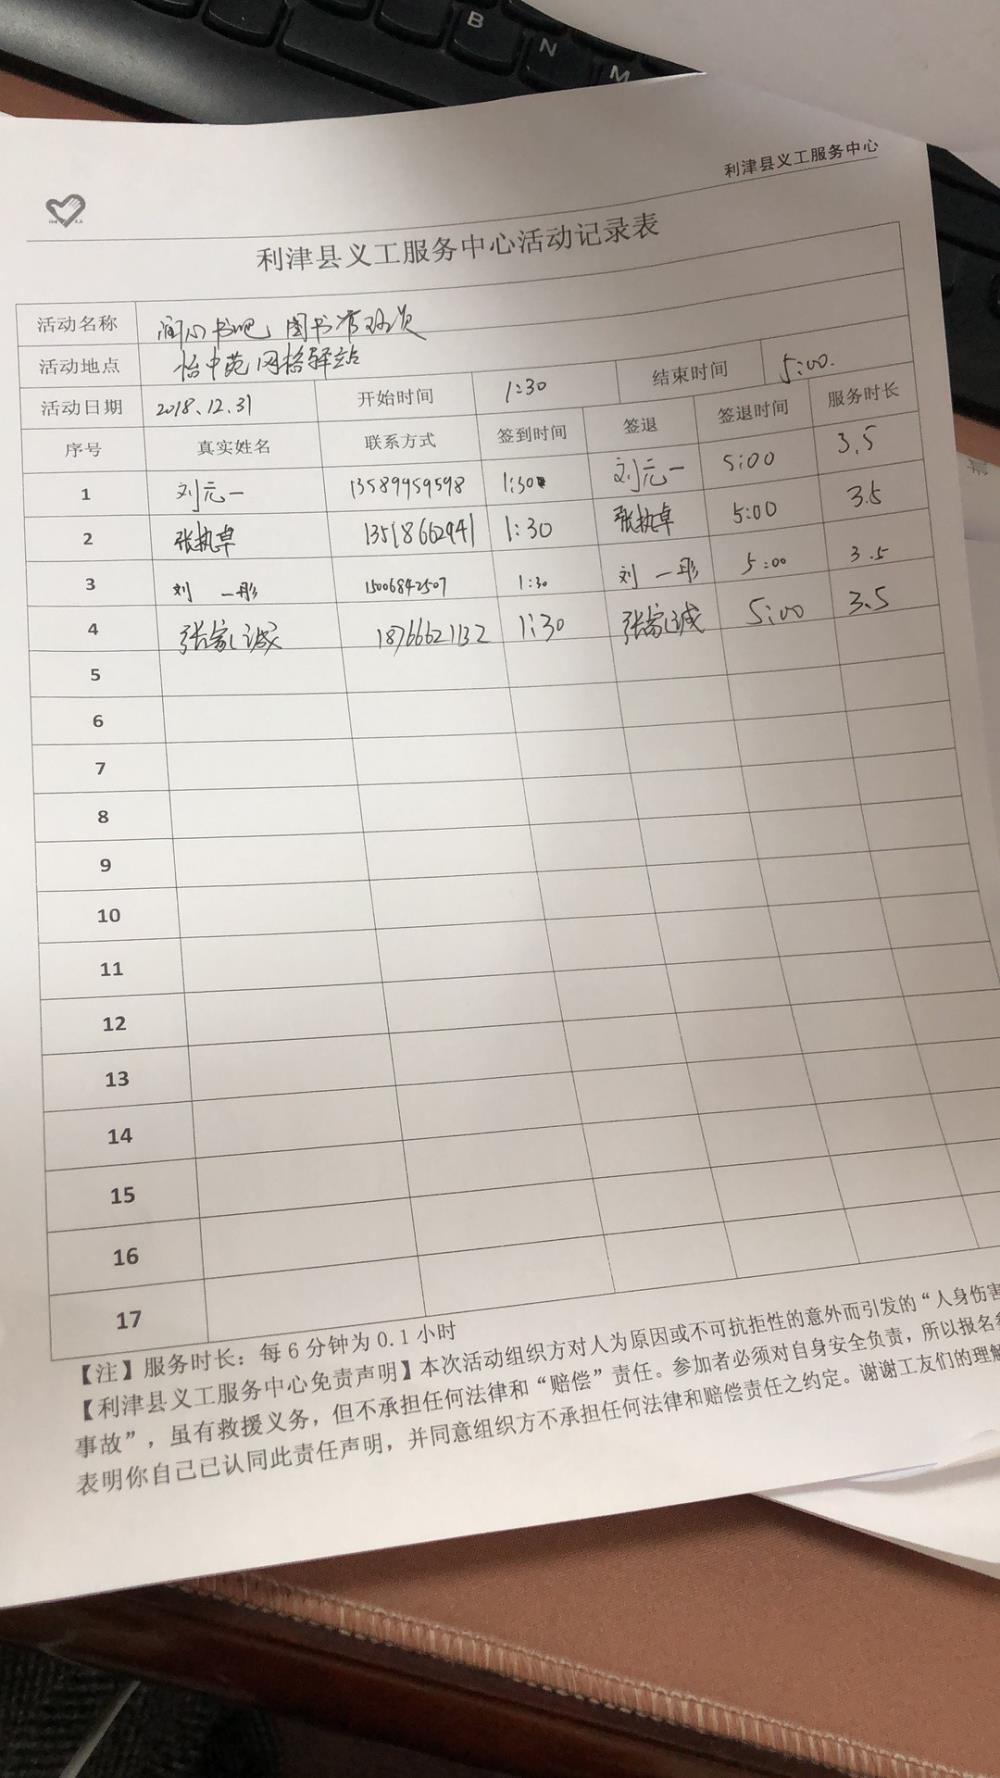 B
N
M
利津县义工服务中心
利津县义工服务中心活动记录表
活动名称 润心书吧图书管理员
活动地点 怡中苑网格驿站
活动日期 2018.12.31 开始时间 1:30 结束时间 5:00.
序号 真实姓名 联系方式 签到时间 签退 签退时间 服务时长
1 刘元一 13589959598 1:30 刘元一 5:00 3.5
2 张执卓 13518662941 1:30 张执卓 5:00 3.5
3 刘一彤 15006842507 1:30 刘一彤 5:00 3.5
4 张家诚 18766621132 1:30 张家诚 5:00 3.5
5
6
7
8
9
10
11
12
13
14
15
16
17
【注】服务时长：每6分钟为0.1小时
【利津县义工服务中心免责声明】本次活动组织方对人为原因或不可抗拒性的意外而引发的“人身伤害
事故”，虽有救援义务，但不承担任何法律和“赔偿”责任。参加者必须对自身安全负责，所以报名
表明你自己已认同此责任声明，并同意组织方不承担任何法律和赔偿责任之约定。谢谢工友们的理解